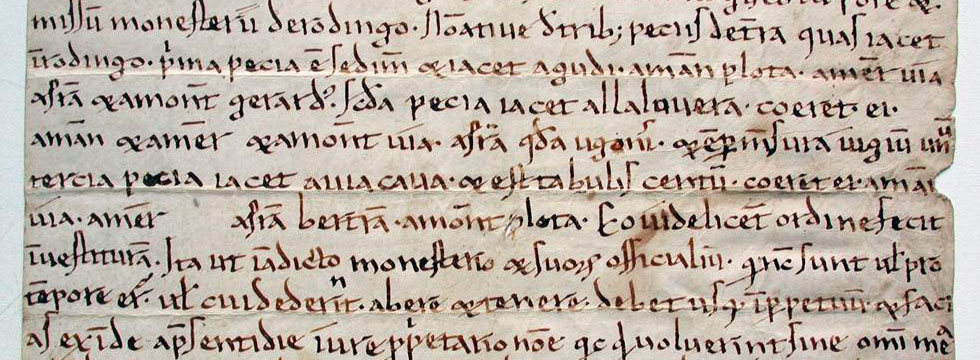 missũ monesterii de rodingo. Nõative de trib; peciis de tr̃a quas iacet
ĩ rodingo. p̃ma pecia ẽ sedim̃ & iacet a gudi. a mãn plota. a mer̃ via
a sr̃a & a mon̄t gerard⁹. Scd̃a pecia iacet allaluvera. coeret ei.
a mãn & a mer̃ & a mon̄t via. a sr̃a qđa ugonis. & ẽ p̃ m̃sura iugiũ unũ
tercia pecia iacet a via cava. & est tabulis centũ. coeret ei a mãn
via. a mer̃ a sr̃a bertrã. a mon̄t plota. Eo videlicet ordine fecit
ĩvestiturã. Ita ut ĩa dicto monesterio & suorꝫ officialiũ. q̃ nc̃ sunt ul̃ pro
tẽpore er̃. ul̃ cui dederint. abere & tenere debet usq; ĩ ppetuũ. & faci
as exĩde a p̃senti die iure ppetario noẽ qc qđ voluerint sine om̃i mea